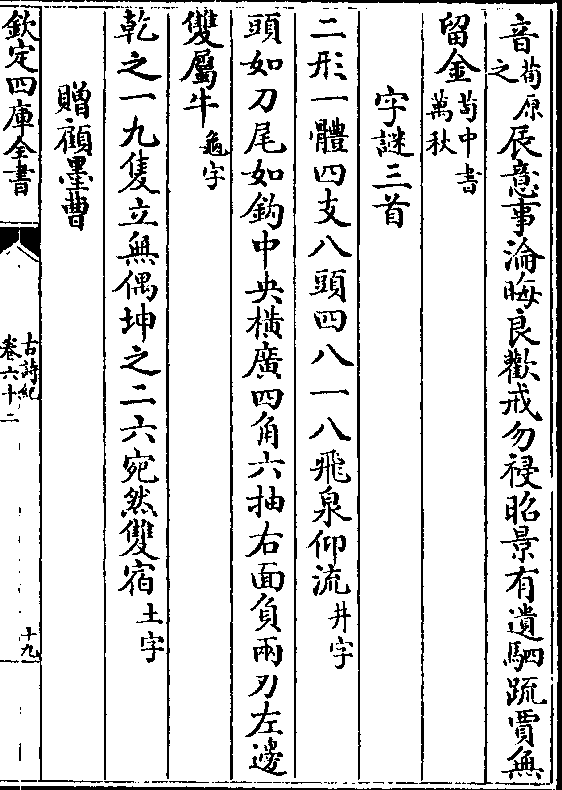 音荀原之
展意事淪晦良歡戒勿祲昭景有遺駟䟽賈無
留金荀中書萬秋
字謎三首
二形一體四支八頭四八一八飛泉仰流井字
頭如刀尾如鈎中央橫廣四角六抽右面負兩刃左邊
雙屬牛龜字
乾之一九隻立無偶坤之二六宛然雙宿土字
贈顧墨曹
欽定四庫全書
古詩紀
卷六十二
十九